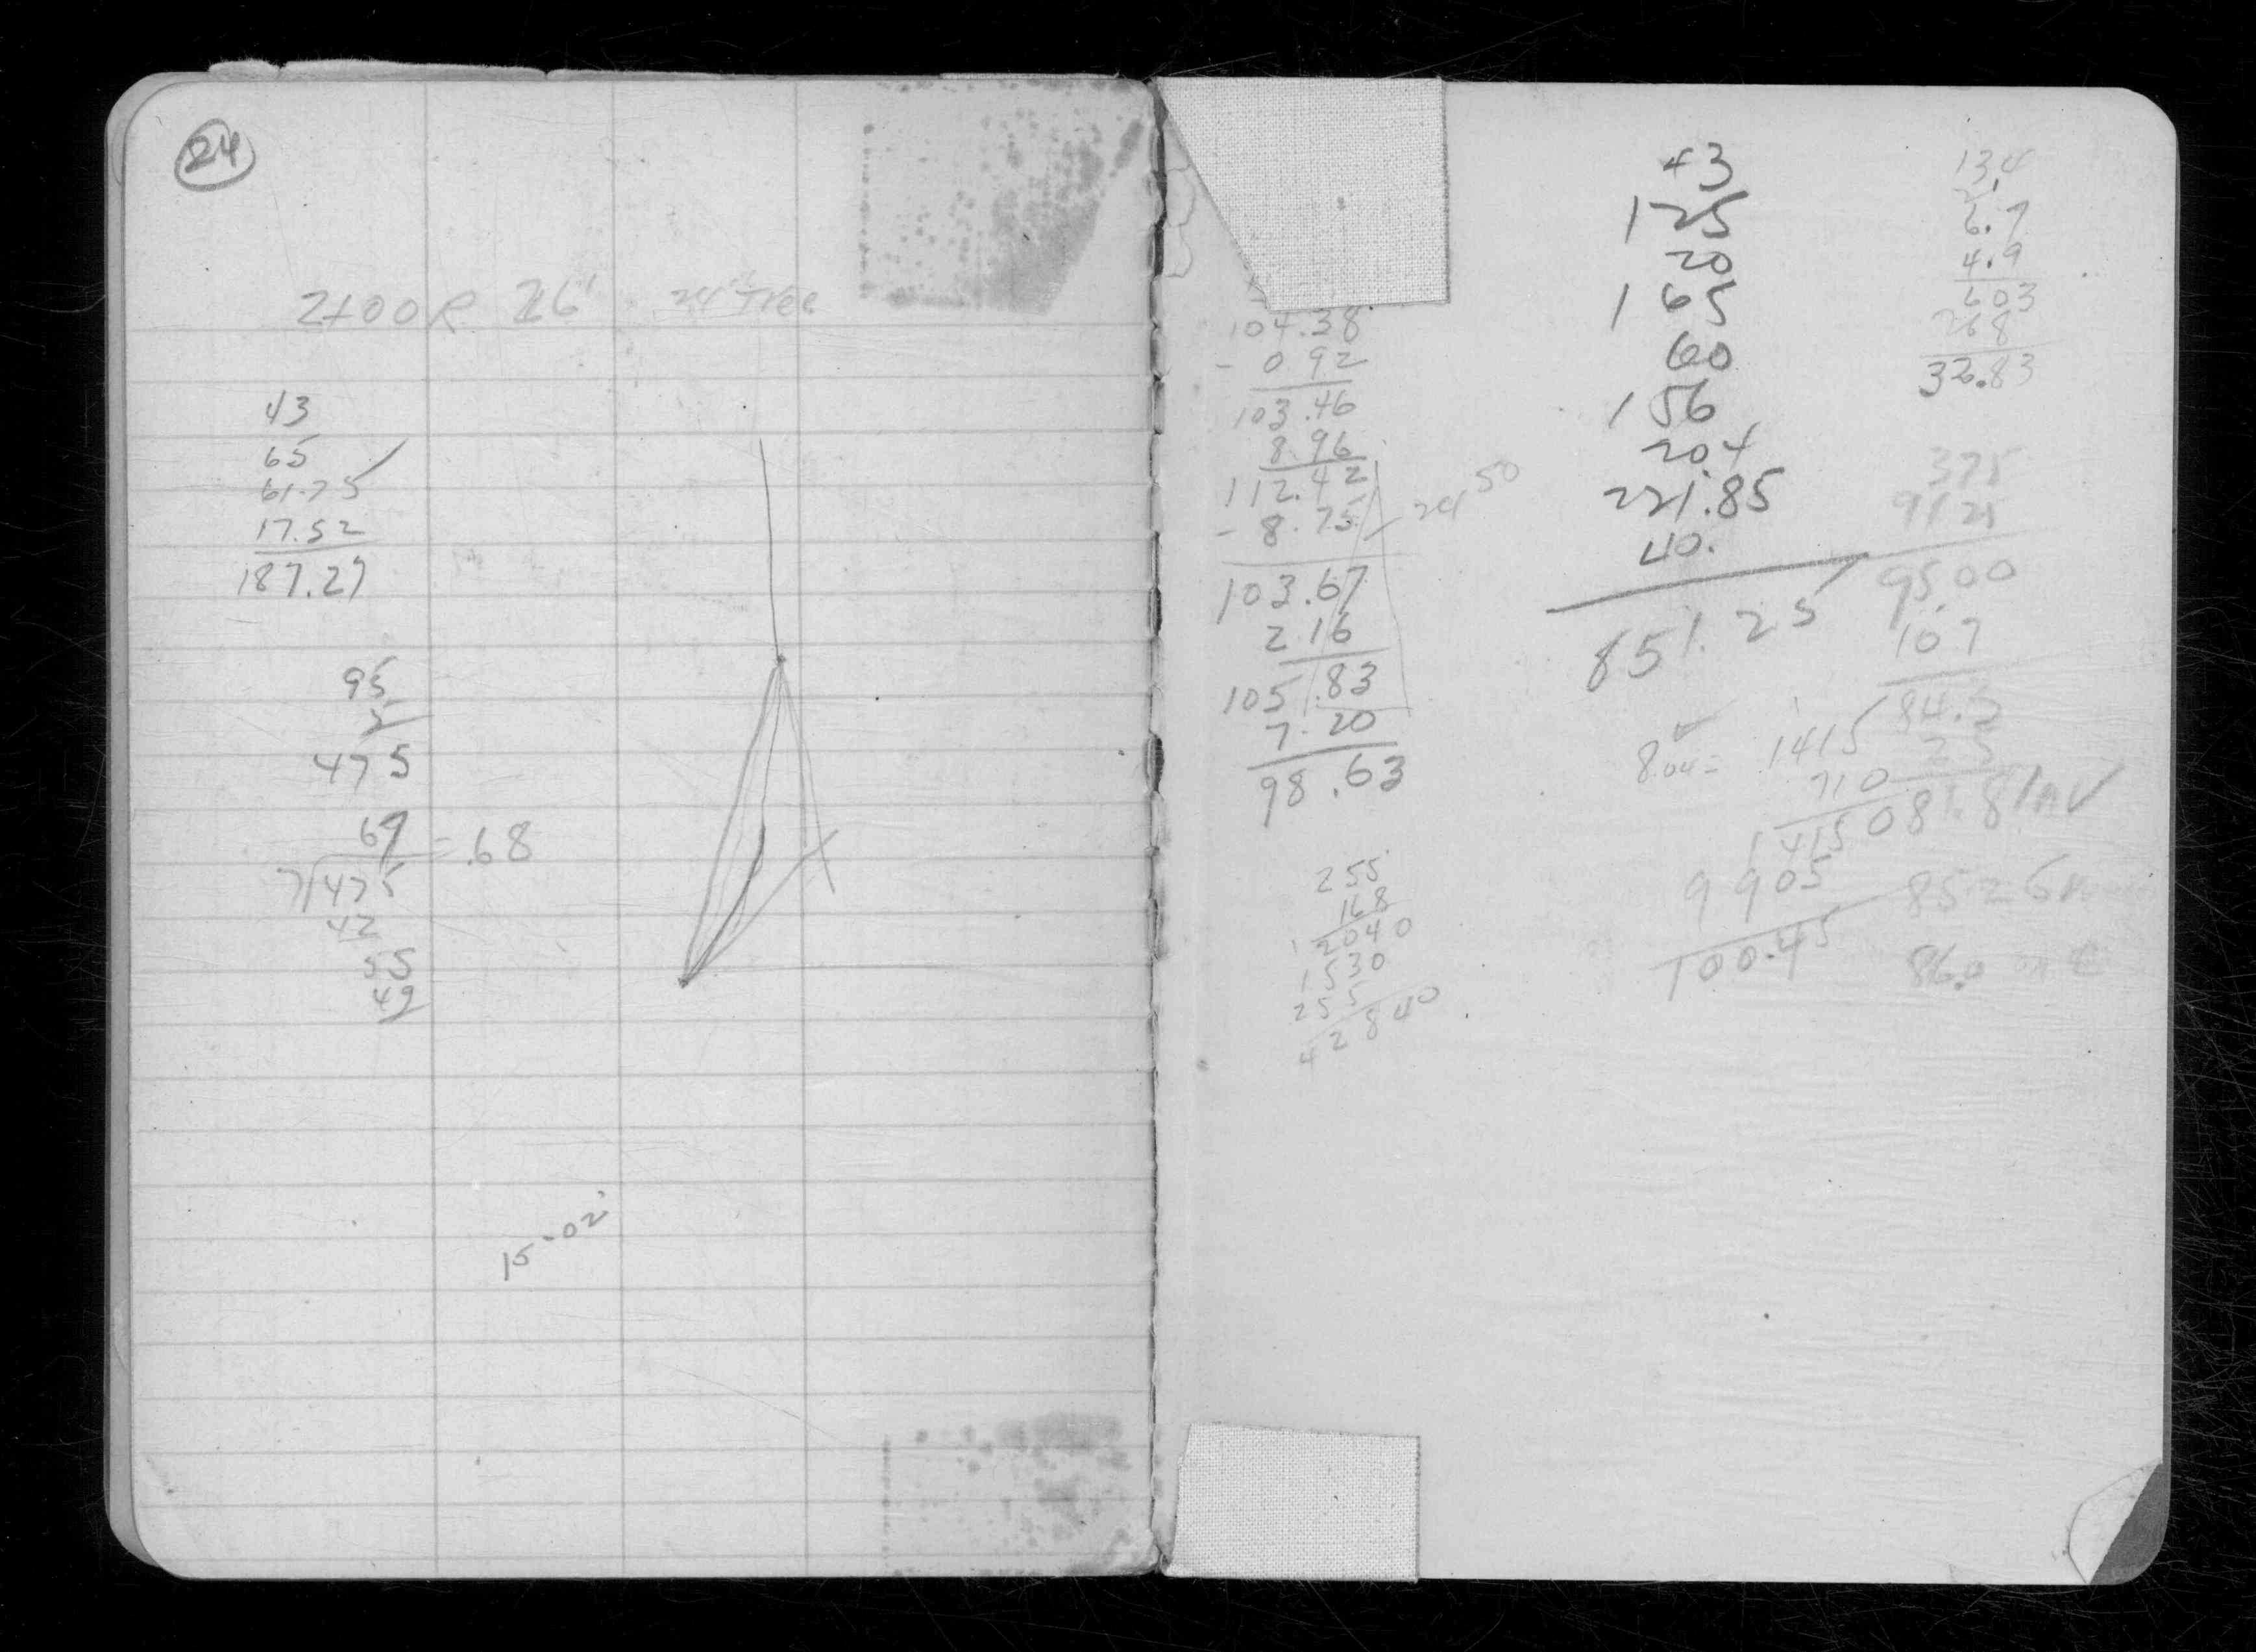 24
2+00 R 26' 24" Tree
43
65
61.75
17.52
187.27
95
5
475
69 = .68
7)475
42
55
49
15-02'
104.38
- 0 92
103.46
8.96
112.42
- 8.75
24 50
103.67
2.16
105.83
7.20
98.63
255
168
2040
1530
255
42840
43
125
20
165
60
156
204
221.85
40.
851.25
8.04=
1415
710
1415
9905
100.45
13.4
2
6.7
4.9
603
268
32.83
375
9125
95.00
10.7
84.3
2.5
81.8 Inv
86.0